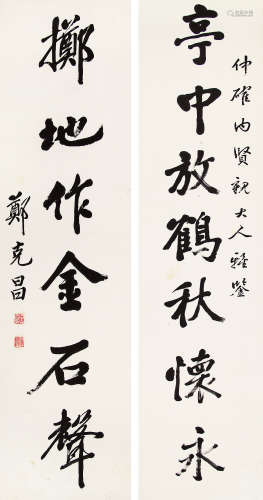 亭中放鶴秋懷永
仲確內賢親大人雅鑒
擲地作金石聲
鄭克昌